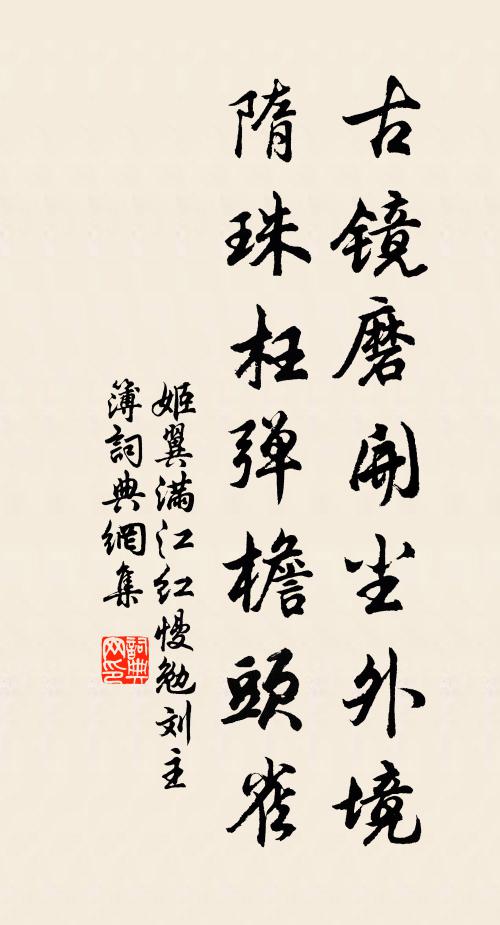 古镜磨開尘外境
隋珠枉弹檐頭雀
姬翼满江红慢勉刘主
簿詞典網集
詞典
网印